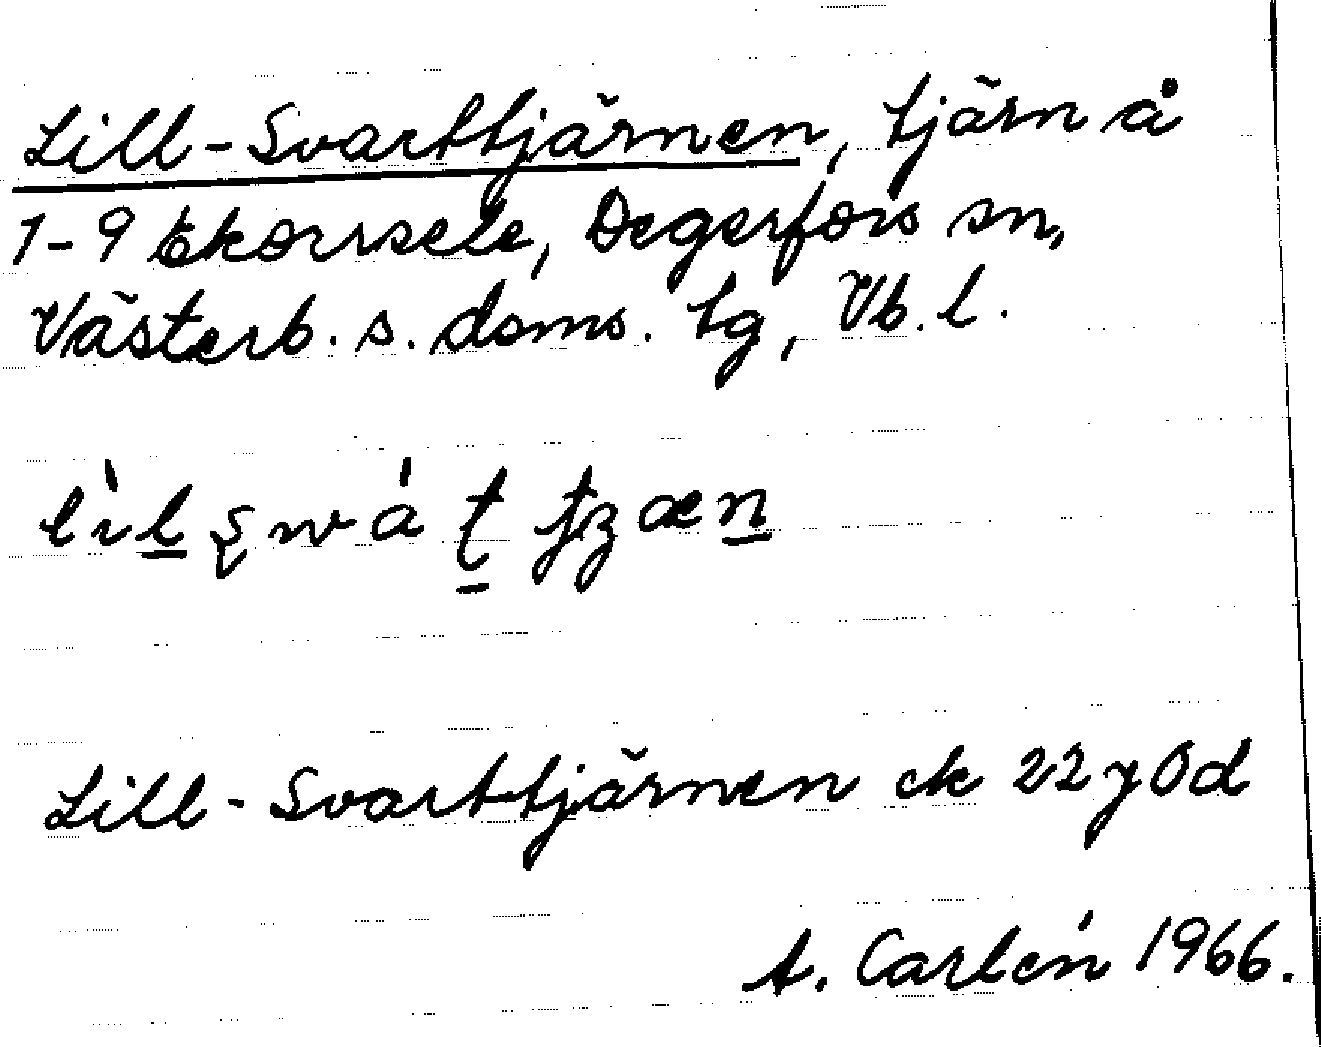 Lill-Svarttjärnen, tjärn å
1-9 Ekorrsele, Degerfors sn,
Västerb. s. doms. tg, Vb. l.
Lill-Svarttjärnen ek 22y0d
A. Carlén 1966.